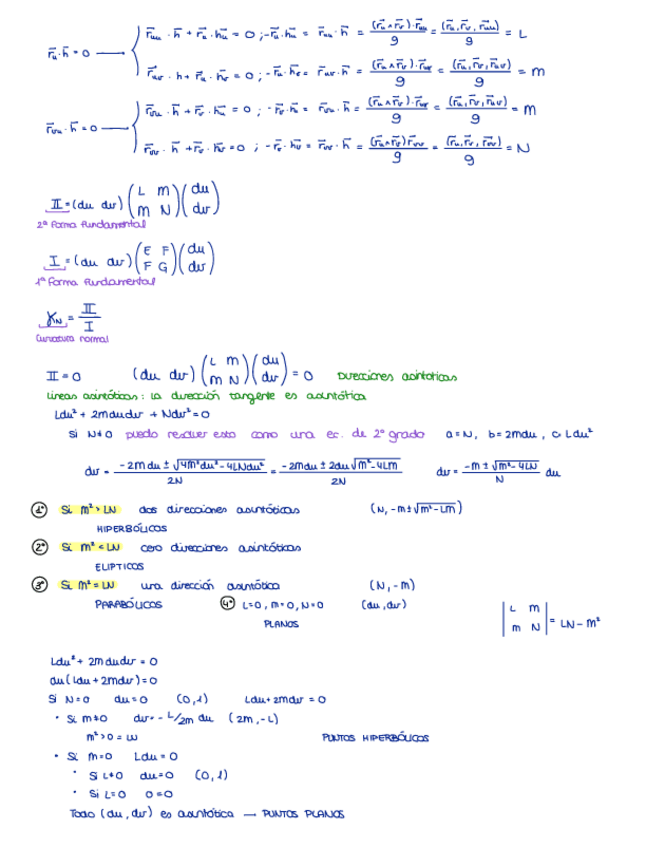 r⃗u · h̄ = 0 → { r⃗uu · h̄ + r⃗u · h̄u = 0 ; -r⃗u · h̄u = r⃗uu · h̄ = (r⃗u ∧ r⃗v) · r⃗uu / g = (r⃗u, r⃗v, r⃗uu) / g = L
r⃗uv · h + r⃗u · h̄v = 0 ; -r⃗u · h̄v = r⃗uv · h̄ = (r⃗u ∧ r⃗v) · r⃗uv / g = (r⃗u, r⃗v, r⃗uv) / g = m
r⃗vu · h̄ = 0 → { r⃗vu · h̄ + r⃗v · h̄u = 0 ; -r⃗v · h̄u = r⃗vu · h̄ = (r⃗u ∧ r⃗v) · r⃗uv / g = (r⃗u, r⃗v, r⃗uv) / g = m
r⃗vv · h̄ + r⃗v · h̄v = 0 ; -r⃗v · h̄v = r⃗vv · h̄ = (r⃗u ∧ r⃗v) r⃗vv / g = (r⃗u, r⃗v, r⃗vv) / g = N
II = (du dv) (L m / m N) (du / dv)
2ª Forma Fundamental
I = (du dv) (E F / F G) (du / dv)
1ª Forma Fundamental
γN = II / I
Curvatura normal
II = 0 (du dv) (L m / m N) (du / dv) = 0 Direcciones asintóticas
Líneas asintóticas: la dirección tangente es asintótica
Ldu² + 2mdudv + Ndv² = 0
Si N≠0 puedo resolver esto como una ec. de 2º grado a = N, b = 2mdu, c = Ldu²
dv = (-2mdu ± √(4m²du² - 4LNdu²)) / 2N = (-2mdu ± 2du√(m² - 4Lm)) / 2N dv = (-m ± √(m² - 4LN)) / N du
1º Si m² > LN dos direcciones asintóticas (N, -m ± √(m² - Lm))
HIPERBÓLICOS
2º Si m² < LN cero direcciones asintóticas
ELIPTICOS
3º Si m² = LN una dirección asintótica (N, -m)
PARABÓLICOS 4º L=0, m=0, N=0 (du, dv) |L m / m N| = LN - m²
PLANOS
Ldu² + 2mdudv = 0
du(Ldu + 2mdv) = 0
Si N = 0 du = 0 (0,1) Ldu + 2mdv = 0
· Si m≠0 dv = -L/2m du (2m, -L)
m² > 0 = LN PUNTOS HIPERBÓLICOS
· Si m=0 Ldu = 0
· Si L≠0 du=0 (0,1)
· Si L=0 0=0
Todo (du, dv) es asintótica → PUNTOS PLANOS